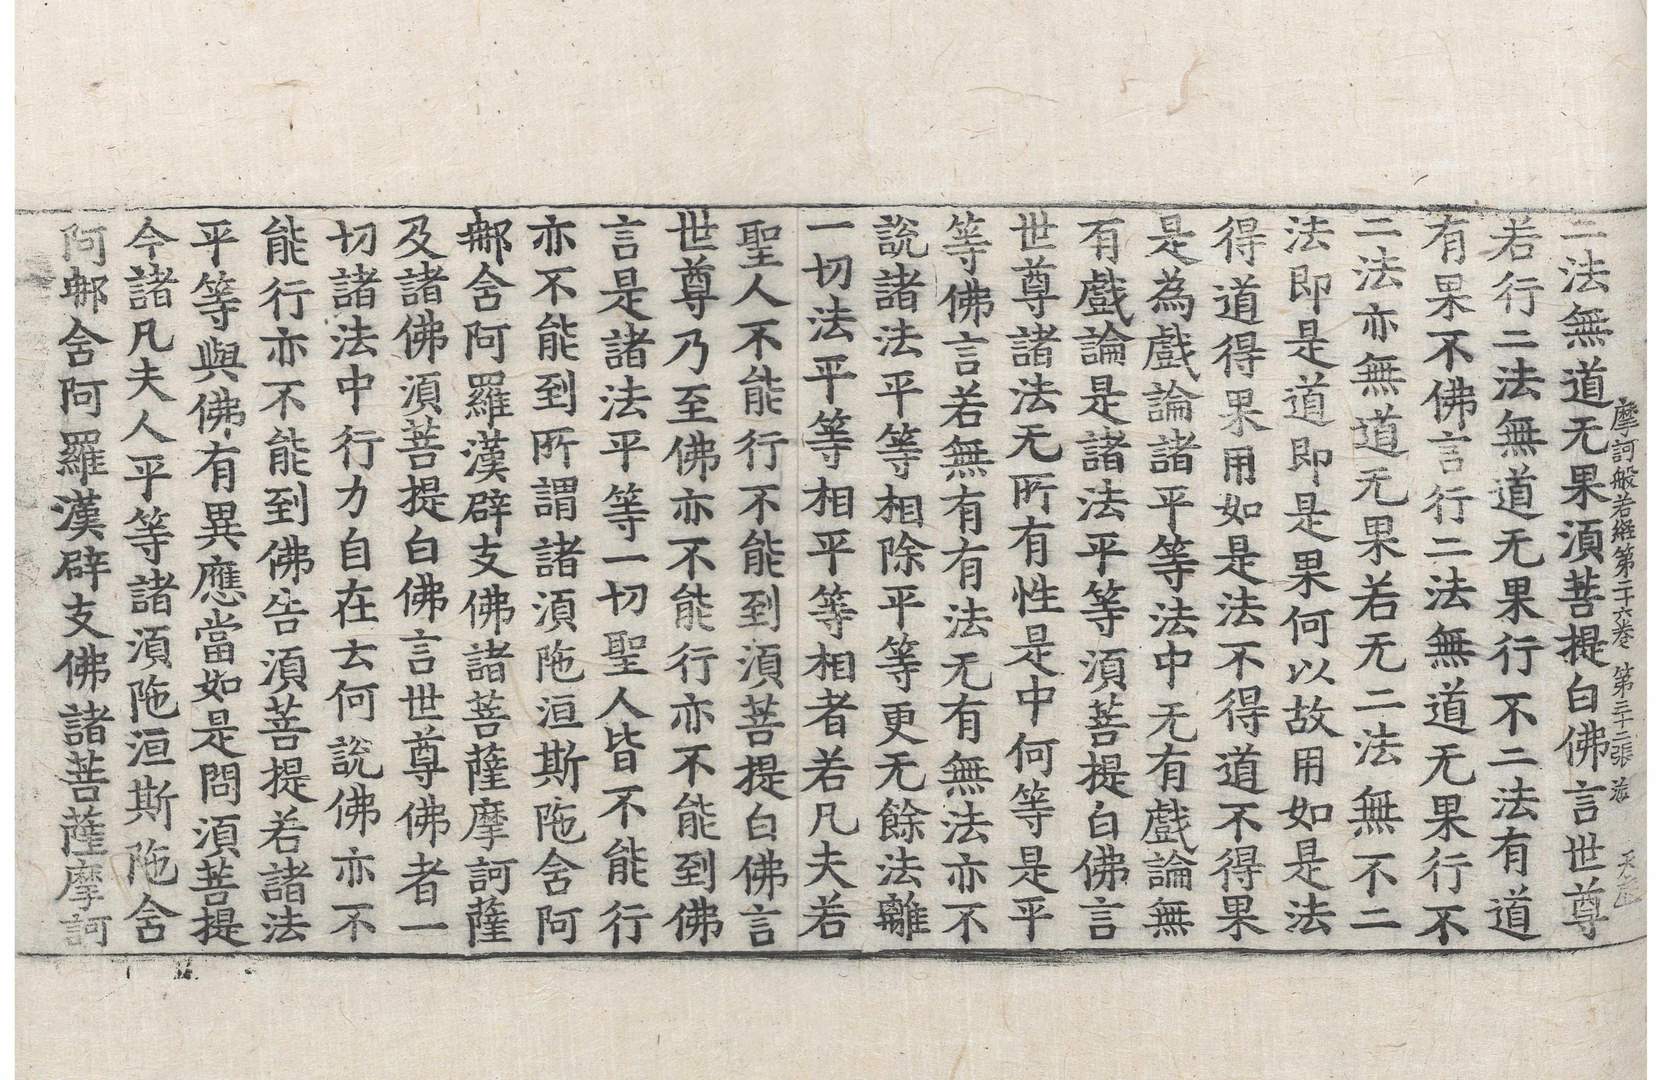 摩訶般若經第二十六卷 第三十二張
二法無道无果須菩提白佛言世尊
若行二法無道无果行不二法有道
有果不佛言行二法無道无果行不
二法亦無道无果若无二法無不二
法即是道即是果何以故用如是法
得道得果用如是法不得道不得果
是為戲論諸平等法中无有戲論無
有戲論是諸法平等須菩提白佛言
世尊諸法无所有性是中何等是平
等佛言若無有有法无有無法亦不
說諸法平等相除平等更无餘法離
一切法平等相平等相者若凡夫若
聖人不能行不能到須菩提白佛言
世尊乃至佛亦不能行亦不能到佛
言是諸法平等一切聖人皆不能行
亦不能到所謂諸須陁洹斯陁含阿
𨚗含阿羅漢辟支佛諸菩薩摩訶薩
及諸佛須菩提白佛言世尊佛者一
切諸法中行力自在云何說佛亦不
能行亦不能到佛告須菩提若諸法
平等與佛有異應當如是問須菩提
今諸凡夫人平等諸須陁洹斯陁含
阿𨚗含阿羅漢辟支佛諸菩薩摩訶